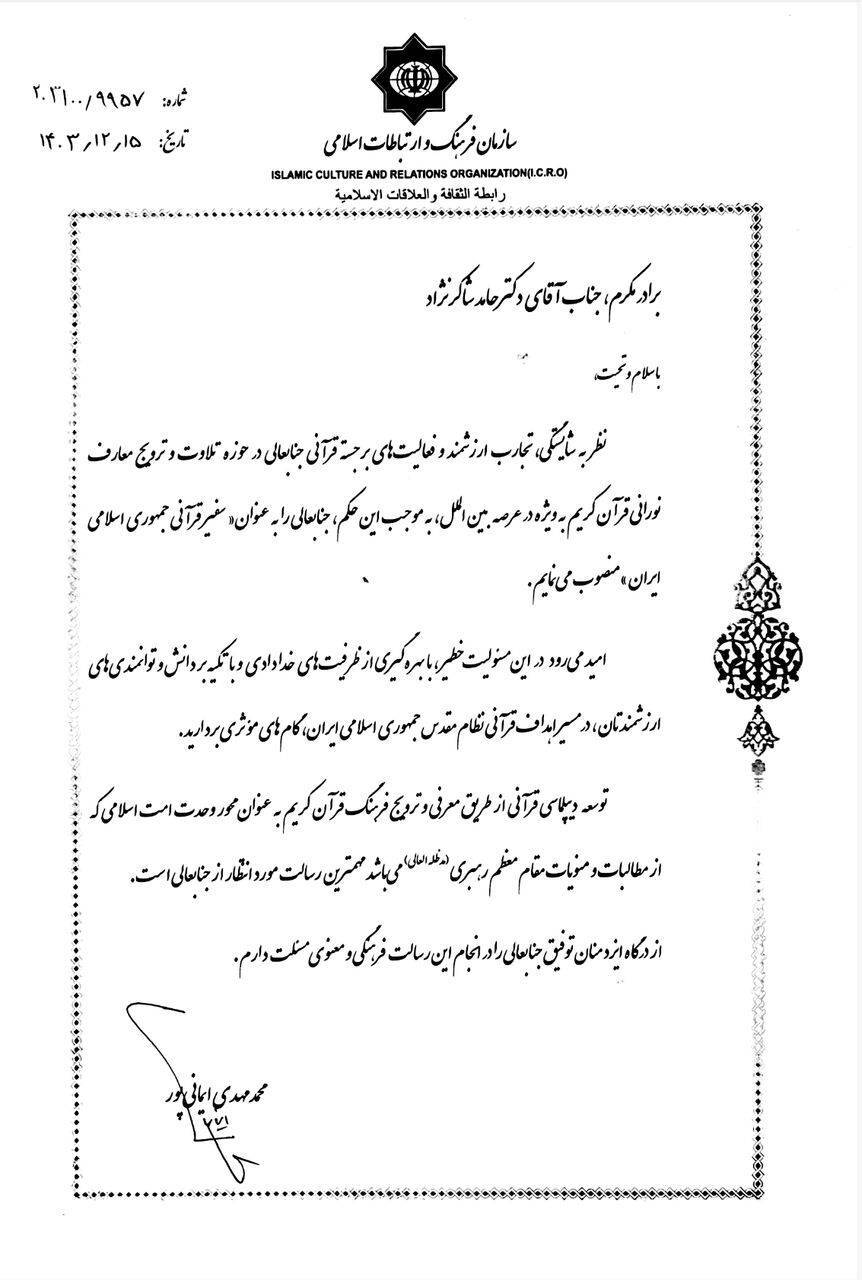 شماره: ۲۰۳۱۰۰/۹۹۵۷
تاریخ: ۱۴۰۳/۱۲/۱۵
سازمان فرهنگ و ارتباطات اسلامی
ISLAMIC CULTURE AND RELATIONS ORGANIZATION(I.C.R.O)
رابطة الثقافة والعلاقات الاسلامية
برادر مکرم، جناب آقای دکتر حامد شاکرنژاد
با سلام و تحیت،
نظر به شایستگی، تجارب ارزشمند و فعالیت‌های برجسته قرآنی جنابعالی در حوزه تلاوت و ترویج معارف
نورانی قرآن کریم به ویژه در عرصه بین الملل، به موجب این حکم، جنابعالی را به عنوان « سفیر قرآنی جمهوری اسلامی
ایران » منصوب می‌نمایم.
امید می‌رود در این مسئولیت خطیر، با بهره گیری از ظرفیت‌های خدادادی و با تکیه بر دانش و توانمندی‌های
ارزشمندتان، در مسیر اهداف قرآنی نظام مقدس جمهوری اسلامی ایران، گام‌های مؤثری بردارید.
توسعه دیپلماسی قرآنی از طریق معرفی و ترویج فرهنگ قرآن کریم به عنوان محور وحدت امت اسلامی که
از مطالبات و منویات مقام معظم رهبری (مدظله العالی) می‌باشد مهمترین رسالت مورد انتظار از جنابعالی است.
از درگاه ایزد منان توفیق جنابعالی را در انجام این رسالت فرهنگی و معنوی مسئلت دارم.
محمد مهدی ایمانی پور